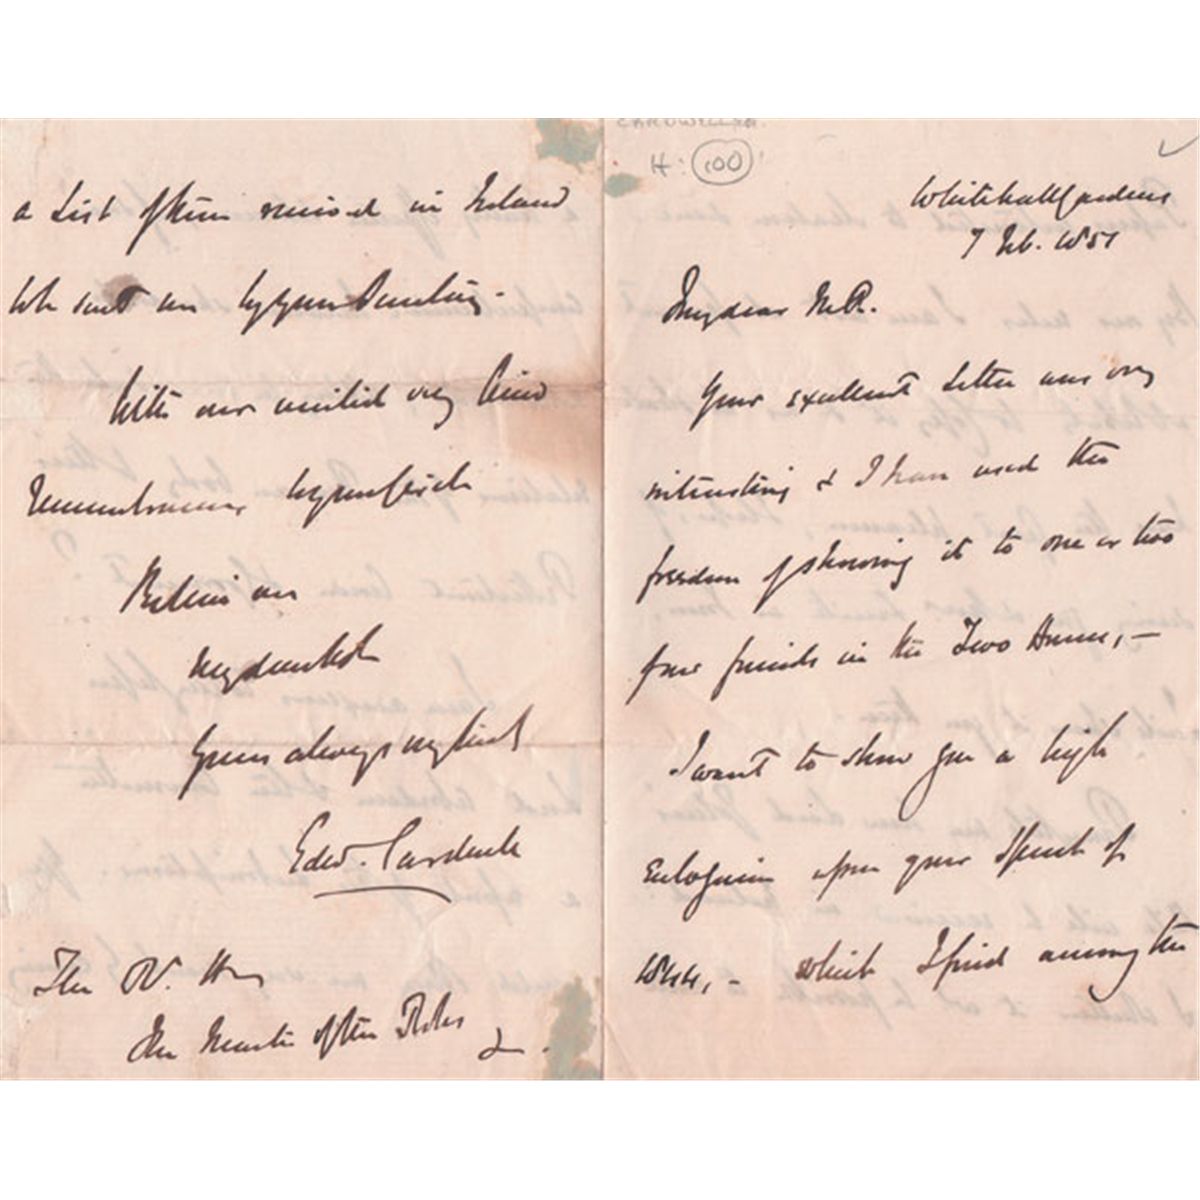 CARDWELL
H: 100
Whitehall Gardens
7 Feb. 1851
My dear M.R.
Your excellent letter was very
interesting & I have used the
freedom of showing it to one or two
fair friends in the Two Houses, —
I want to show you a high
Eulogium upon your Speech of
1844, — which I find among the
a list of them received in Ireland
we sent an
With our united very kind
remembrances
Believe me
My dear
Yours always my dear
Edw. Cardwell
The Rt. Hon
The Master of the Rolls